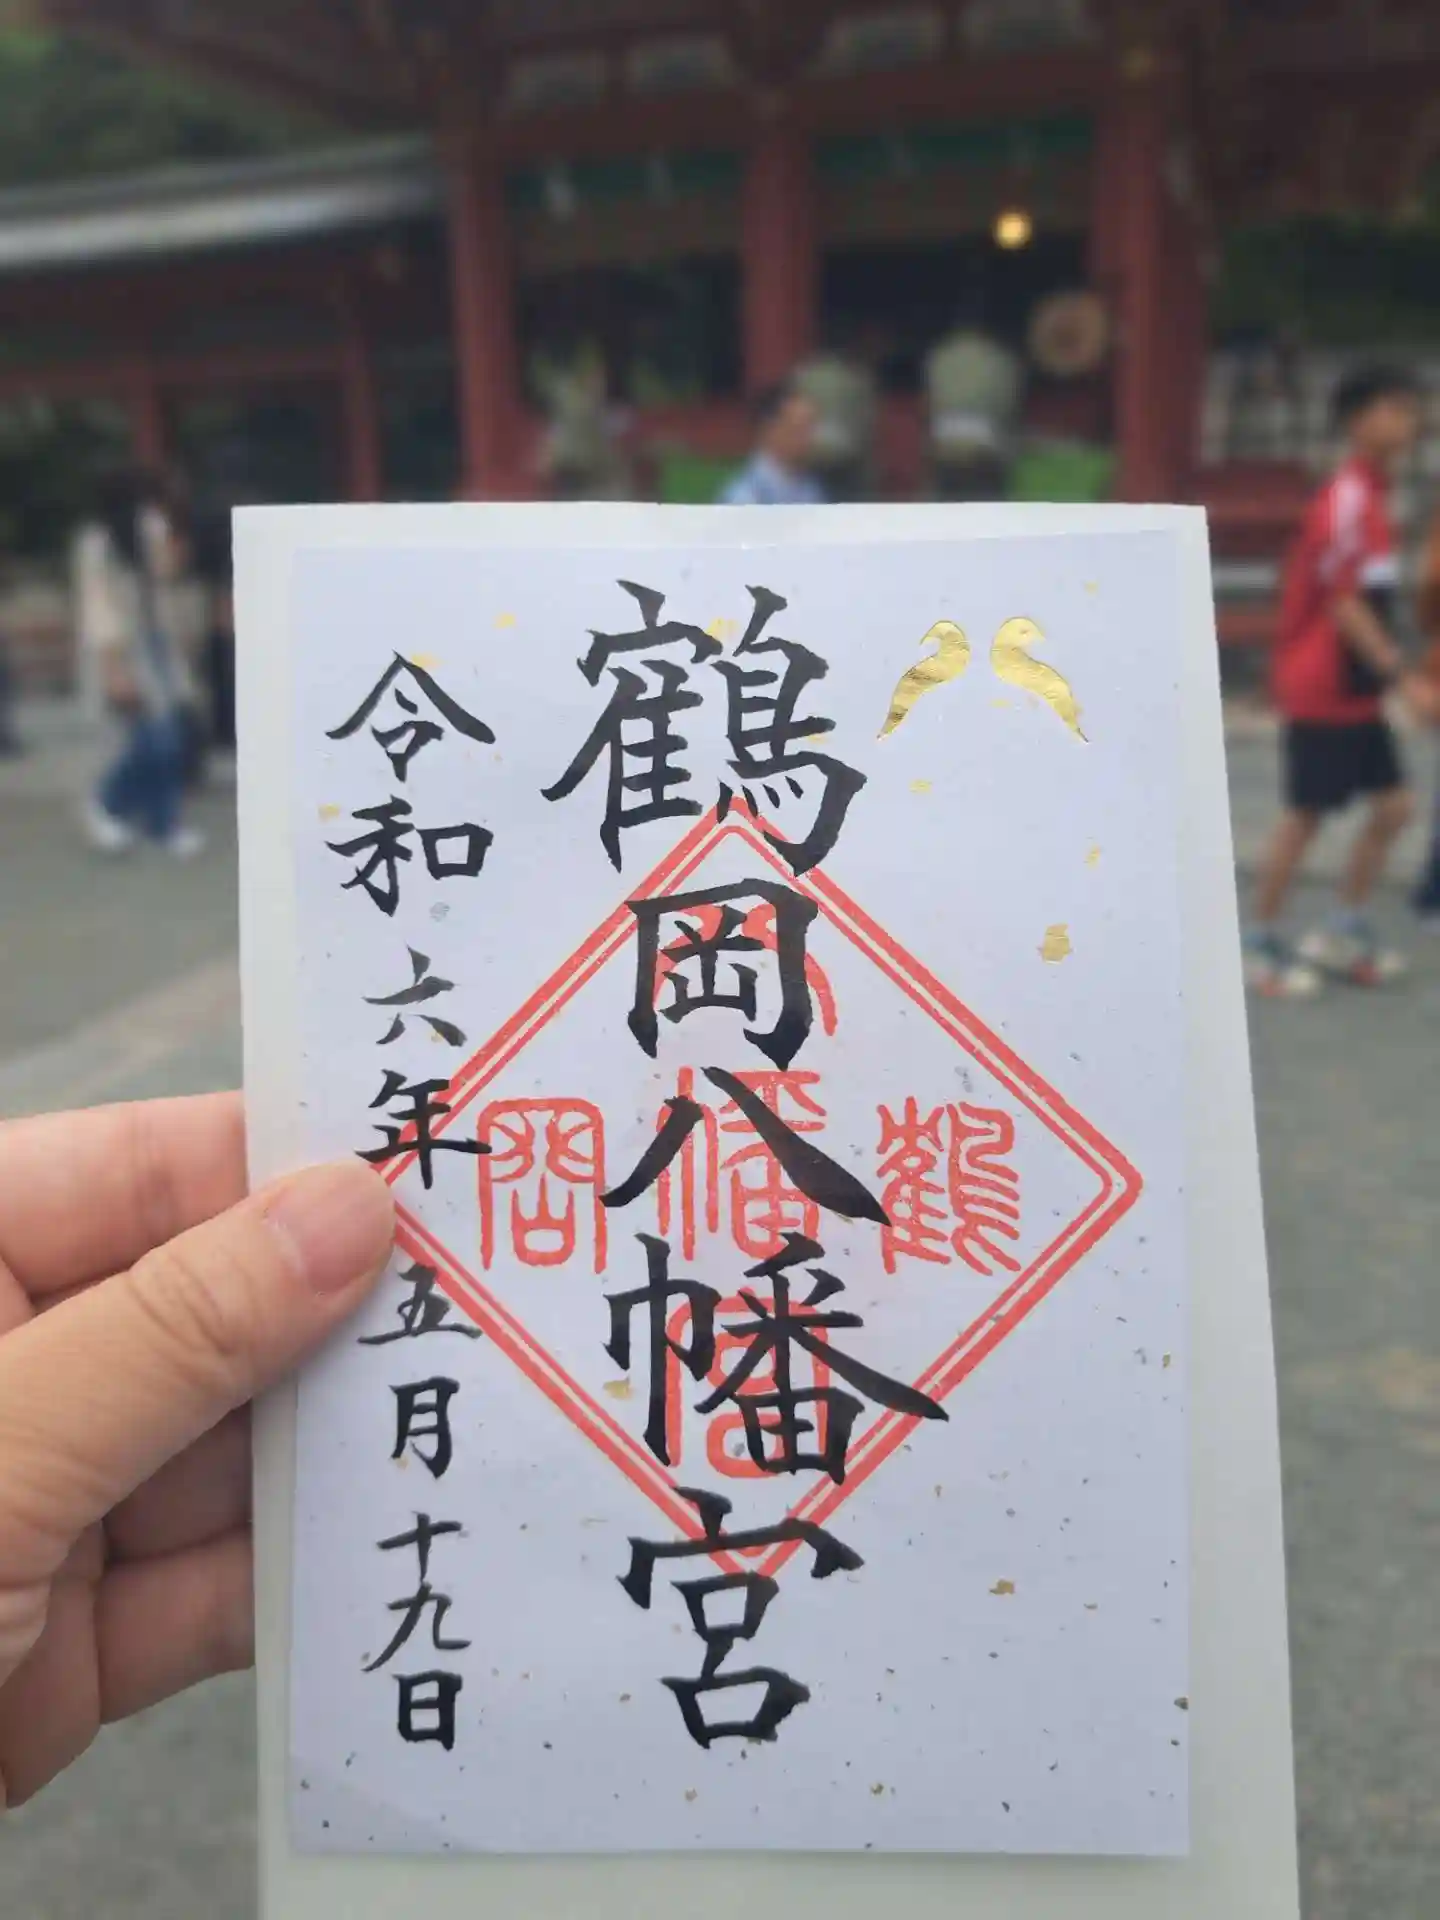 鶴岡八幡宮
令和六年五月十九日
鶴
八幡宮
岡